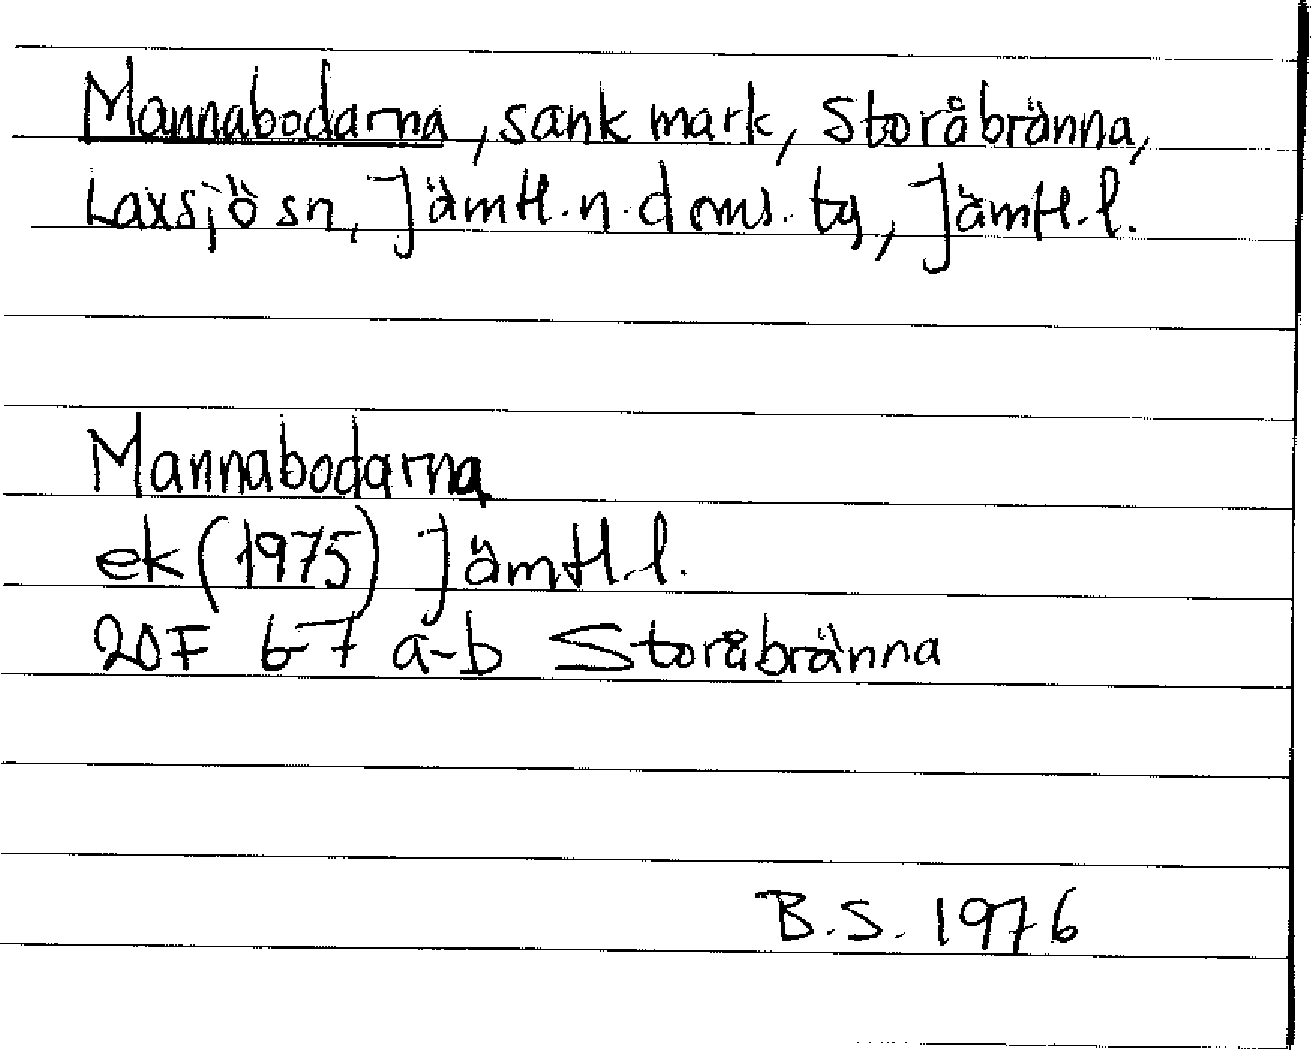 Mannabodarna, sank mark, Storåbränna,
Laxsjö sn, Jämtl. n. doms. tg, Jämtl. l.
Mannabodarna
ek (1975) Jämtl. l.
20F 6-7 a-b Storåbränna
B.S. 1976